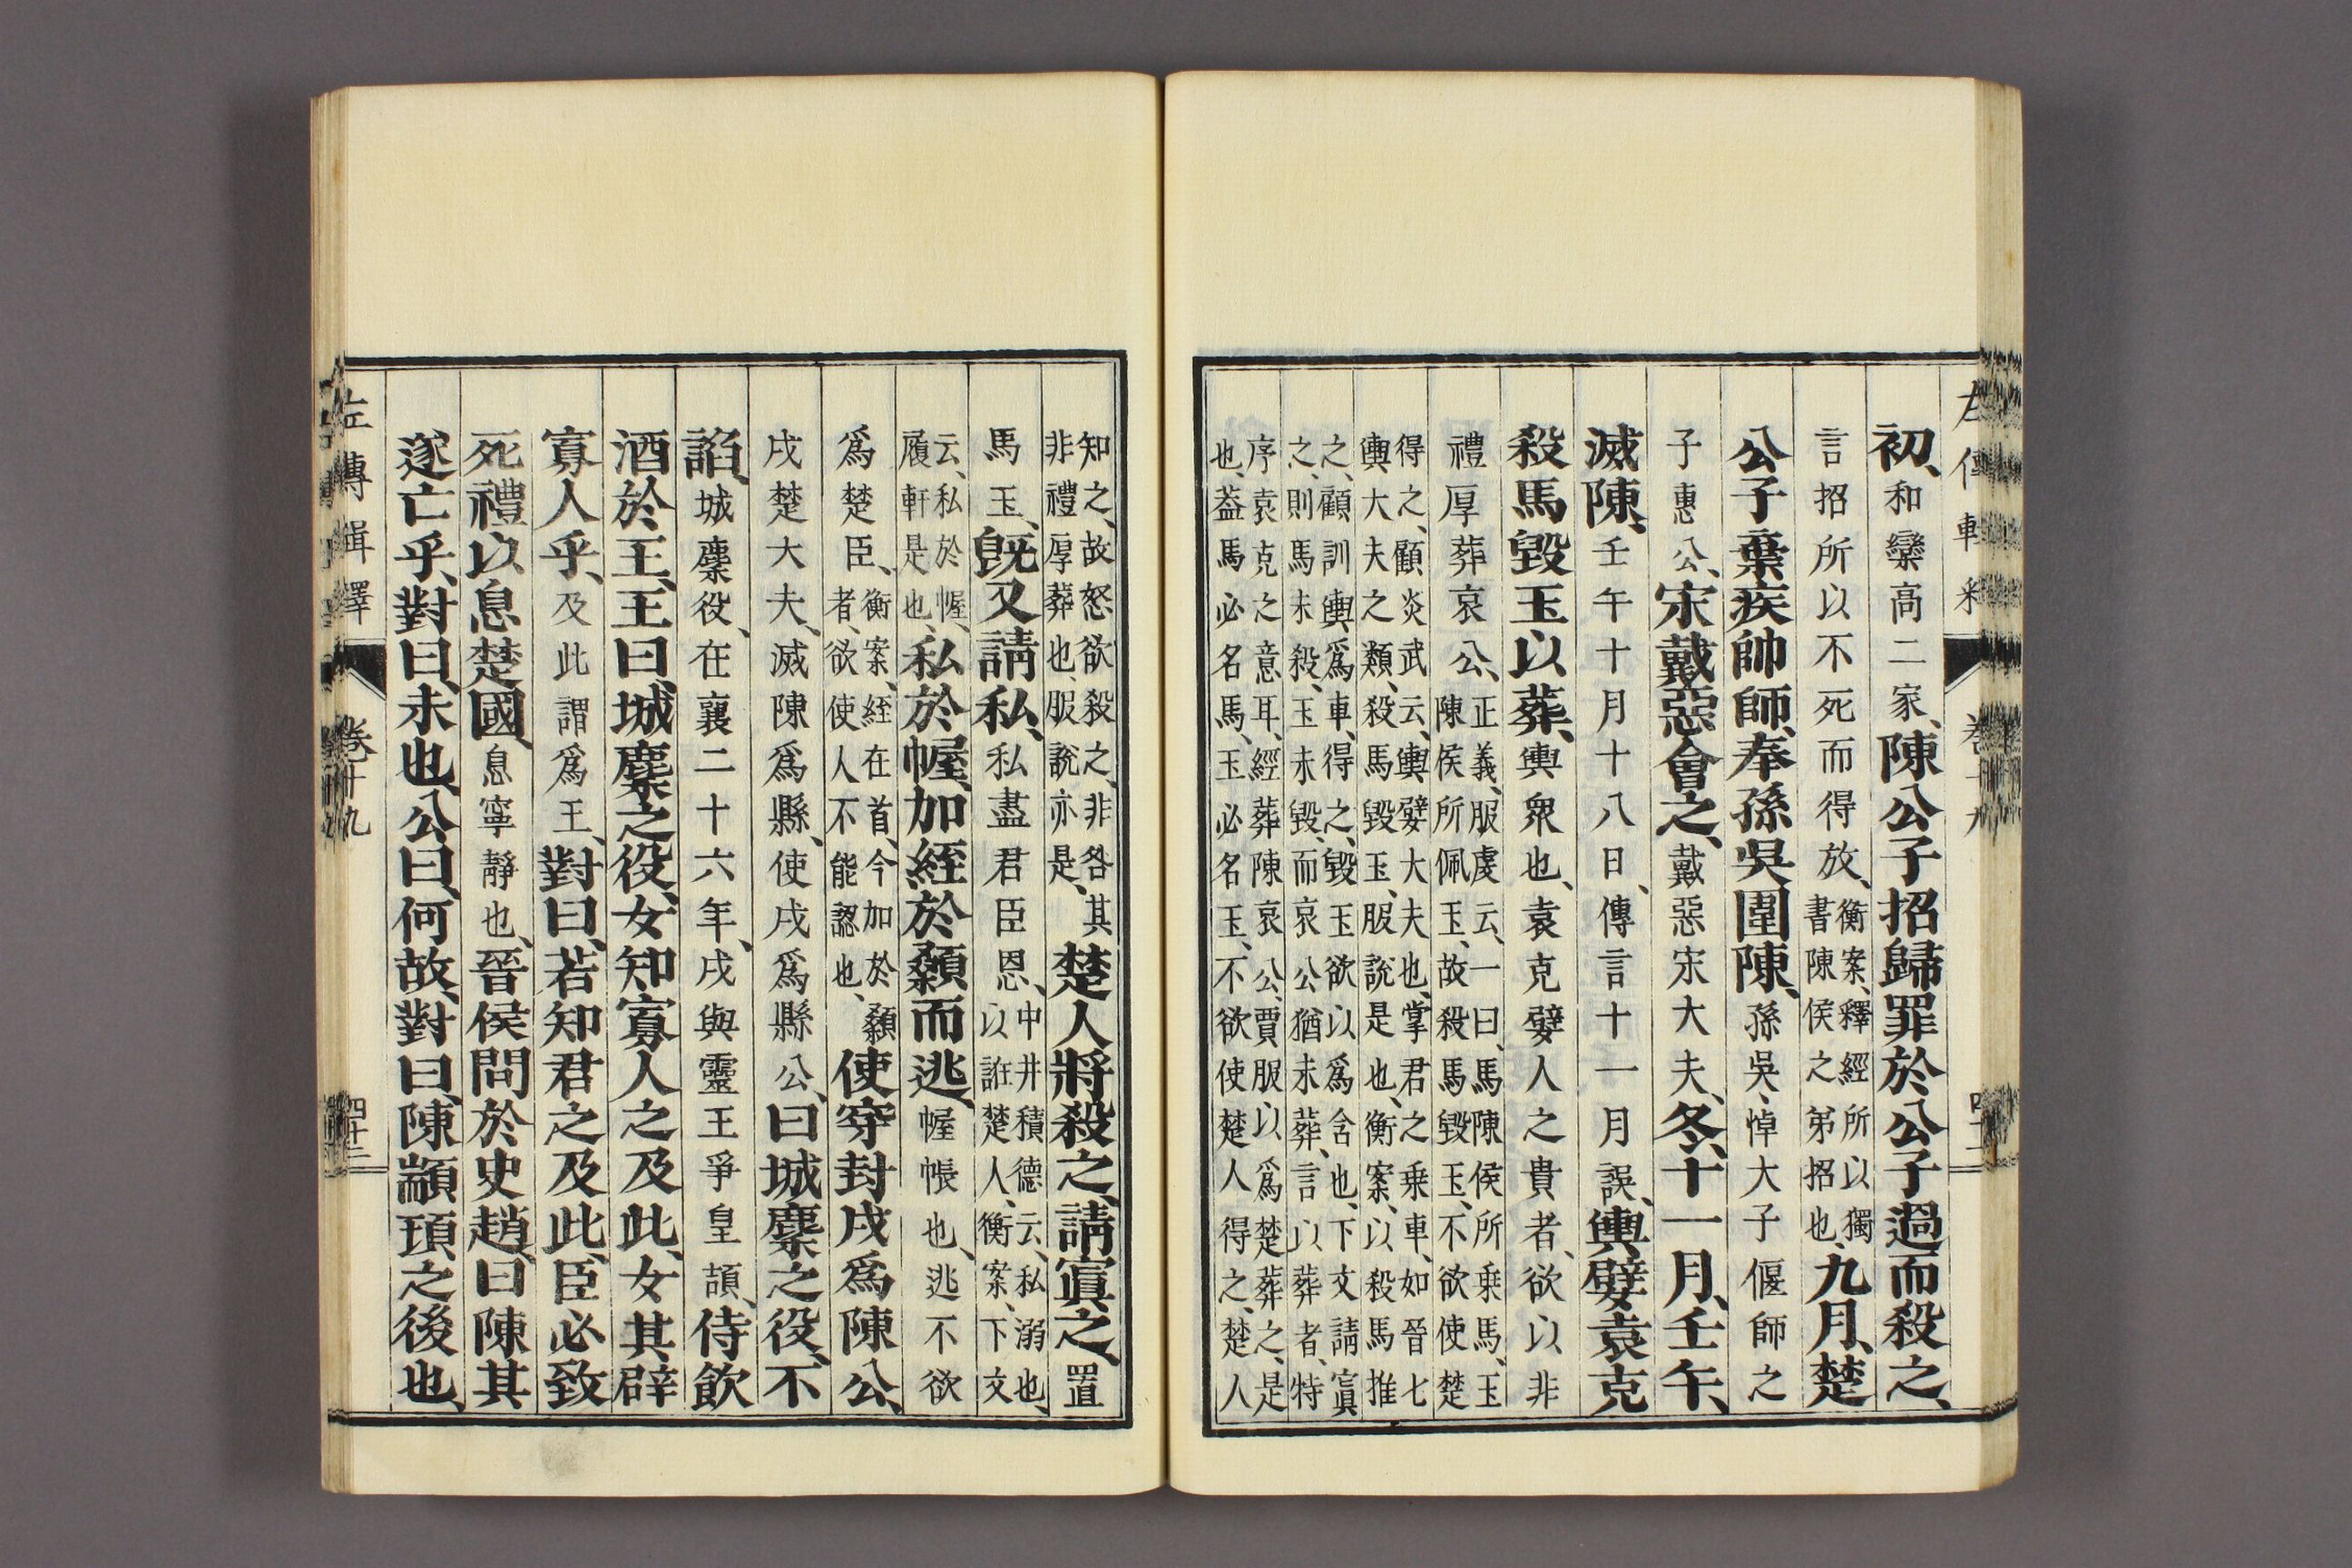 初、和欒高二家、陳公子招歸罪於公子過而殺之、
言招所以不死而得放、衡案、釋經所以獨書陳侯之弟招也、九月、楚
公子棄疾帥師、奉孫吳圍陳、孫吳、悼大子偃師之
子惠公、宋戴惡會之、戴惡宋大夫、冬、十一月、壬午、
滅陳、壬午十月十八日、傳言十一月誤、輿嬖袁克
殺馬毀玉以葬、輿衆也、袁克嬖人之貴者、欲以非
禮厚葬哀公、正義、服虔云、一曰、馬陳侯所乗馬、玉
陳侯所佩玉、故殺馬毀玉、不欲使楚
得之、顧炎武云、輿嬖大夫也、掌君之乗車、如晉七
輿大夫之類、殺馬毀玉、服說是也、衡案、以殺馬推
之、顧訓輿爲車、得之、毀玉欲以爲含也、下文請寘
之、則馬未殺、玉未毀、而哀公猶未葬、言以葬者、特
序袁克之意耳、經葬陳哀公、賈服、以爲楚葬之、是
也、葢馬必名馬、玉必名玉、不欲使楚人得之、楚人
知之、故怒欲殺之、非咎其
非禮厚葬也、服說亦是、楚人將殺之、請寘之、置
馬玉、既又請私、私盡君臣恩、中井積德云、私溺也、
以誑楚人、衡案、下文
云、私於幄、
履軒是也、私於幄、加絰於顙而逃、幄帳也、逃不欲
爲楚臣、衡案、絰在首、今加於顙
者、欲使人不能認也、使穿封戌爲陳公、
戌楚大夫、滅陳爲縣、使戌爲縣公、曰城麇之役、不
諂、城麇役、在襄二十六年、戌與靈王爭皇頡、侍飲
酒於王、王曰、城麇之役、女知寡人之及此、女其辟
寡人乎、及此謂爲王、對曰、若知君之及此、臣必致
死禮以息楚國、息寧靜也、晉侯問於史趙、曰陳其
遂亡乎、對曰、未也、公曰、何故、對曰、陳顓頊之後也、
左傳輯釋 卷十九 四十三